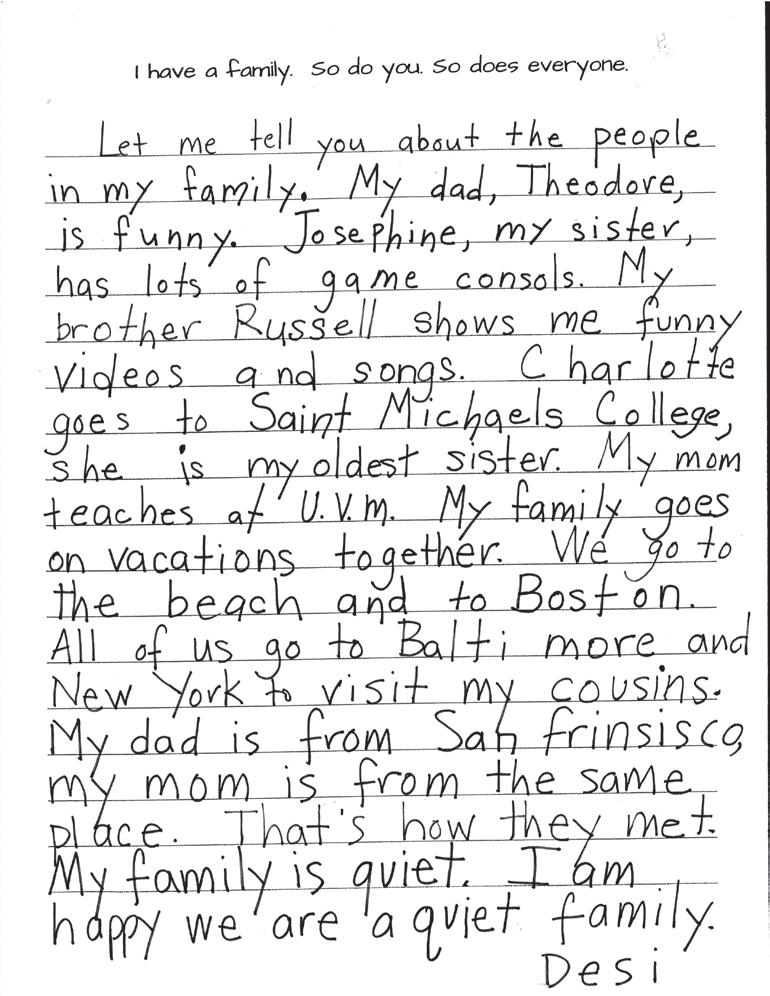 I have a family. So do you. So does everyone.
Let me tell you about the people
in my family. My dad, Theodore,
is funny. Josephine, my sister,
has lots of game consols. My
brother Russell shows me funny
videos and songs. Charlotte
goes to Saint Michaels College,
she is my oldest sister. My mom
teaches at U.V.M. My family goes
on vacations together. We go to
the beach and to Boston.
All of us go to Baltimore and
New York to visit my cousins.
My dad is from San frinsisco,
my mom is from the same
place. That's how they met.
My family is quiet. I am
happy we are a quiet family.
Desi